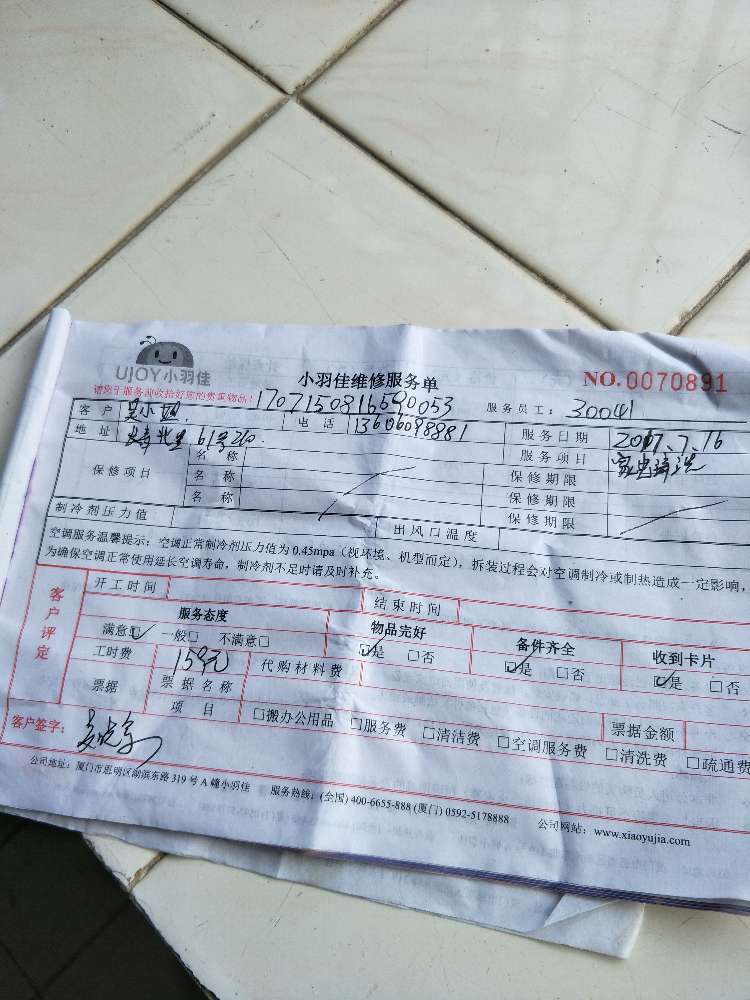 UJOY小羽佳
小羽佳维修服务单
NO.0070891
请您于服务前收拾好您的贵重物品!
170715081659 0053
服务员工: 30041
客户 吴小姐 电话 13606098981 服务日期 2017.7.16
地址 61号210. 服务项目 家电清洗
保修项目 名称 保修期限
名称 保修期限
名称 保修期限
制冷剂压力值 出风口温度
空调服务温馨提示: 空调正常制冷剂压力值为 0.45mpa (视环境、机型而定), 拆装过程会对空调制冷或制热造成一定影响,
为确保空调正常使用延长空调寿命, 制冷剂不足时请及时补充。
客户评定
开工时间 结束时间
服务态度 物品完好 备件齐全 收到卡片
满意☑ 一般□ 不满意□ ☑是 □否 ☑是 □否 ☑是 □否
工时费 159元 代购材料费
票据 票据名称 票据金额
项目 □搬办公用品 □服务费 □清洁费 □空调服务费 □清洗费 □疏通费
客户签字:
公司地址: 厦门市思明区湖滨东路 319 号 A 幢小羽佳 服务热线: (全国) 400-6655-888 (厦门) 0592-5178888 公司网站: www.xiaoyujia.com